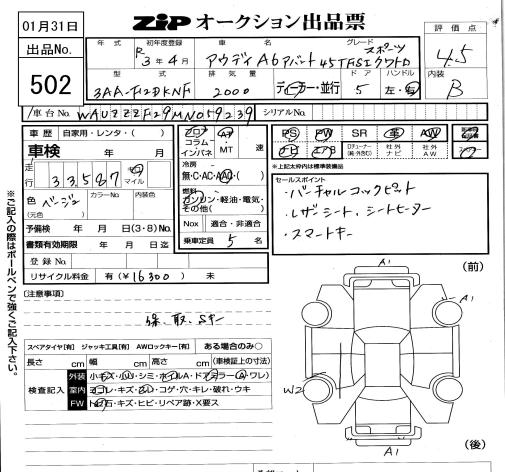 01月31日
ZiP オークション出品票
出品No.
502
年式 初年度登録 車名 グレード
R 3年4月 アウディ A6アバント 45TFSIクワトロ スポーツ
型式 排気量 ドア ハンドル
3AA-F2DKNF 2000 ディーラー・並行 5 左・右
評価点
4.5
内装
B
車台No. WAUZZZF29MN059239 シリアルNo.
車歴 自家用・レンタ・( )
車検 年 月
走行 33,587 km マイル
色 ベージュ カラーNo. 内装色
(元色)
予備検 年 月 日(3・8)No.
書類有効期限 年 月 日迄
登録No.
リサイクル料金 有(¥16300) 未
フロア コラム インパネ AT MT 速
冷房
無・C・AC・AAC( )
燃料
ガソリン・軽油・電気・その他( )
Nox 適合・非適合
乗車定員 5 名
PS PW SR 革 AW
ナビ 社外 社外 AW
※上記文字枠内は標準装備品
セールスポイント
・バーチャルコックピット
・レザーシート、シートヒーター
・スマートキー
[注意事項]
保、取、Sキー
スペアタイヤ[有] ジャッキ工具[有] AWロックキー[有] ある場合のみ○
長さ cm 幅 cm 高さ cm (車検証上の寸法)
検査記入
外装 小キズ・小凹・シミ・ホイルA・ドアミラー(A・ワレ)
室内 ヨゴレ・キズ・スレ・コゲ・穴・キレ・破れ・ウキ
FW トビ石・キズ・ヒビ・リペア跡・X要ス
※ご記入の際はボールペンで強くご記入下さい。
(前)
A1
A1
W2
A1
(後)